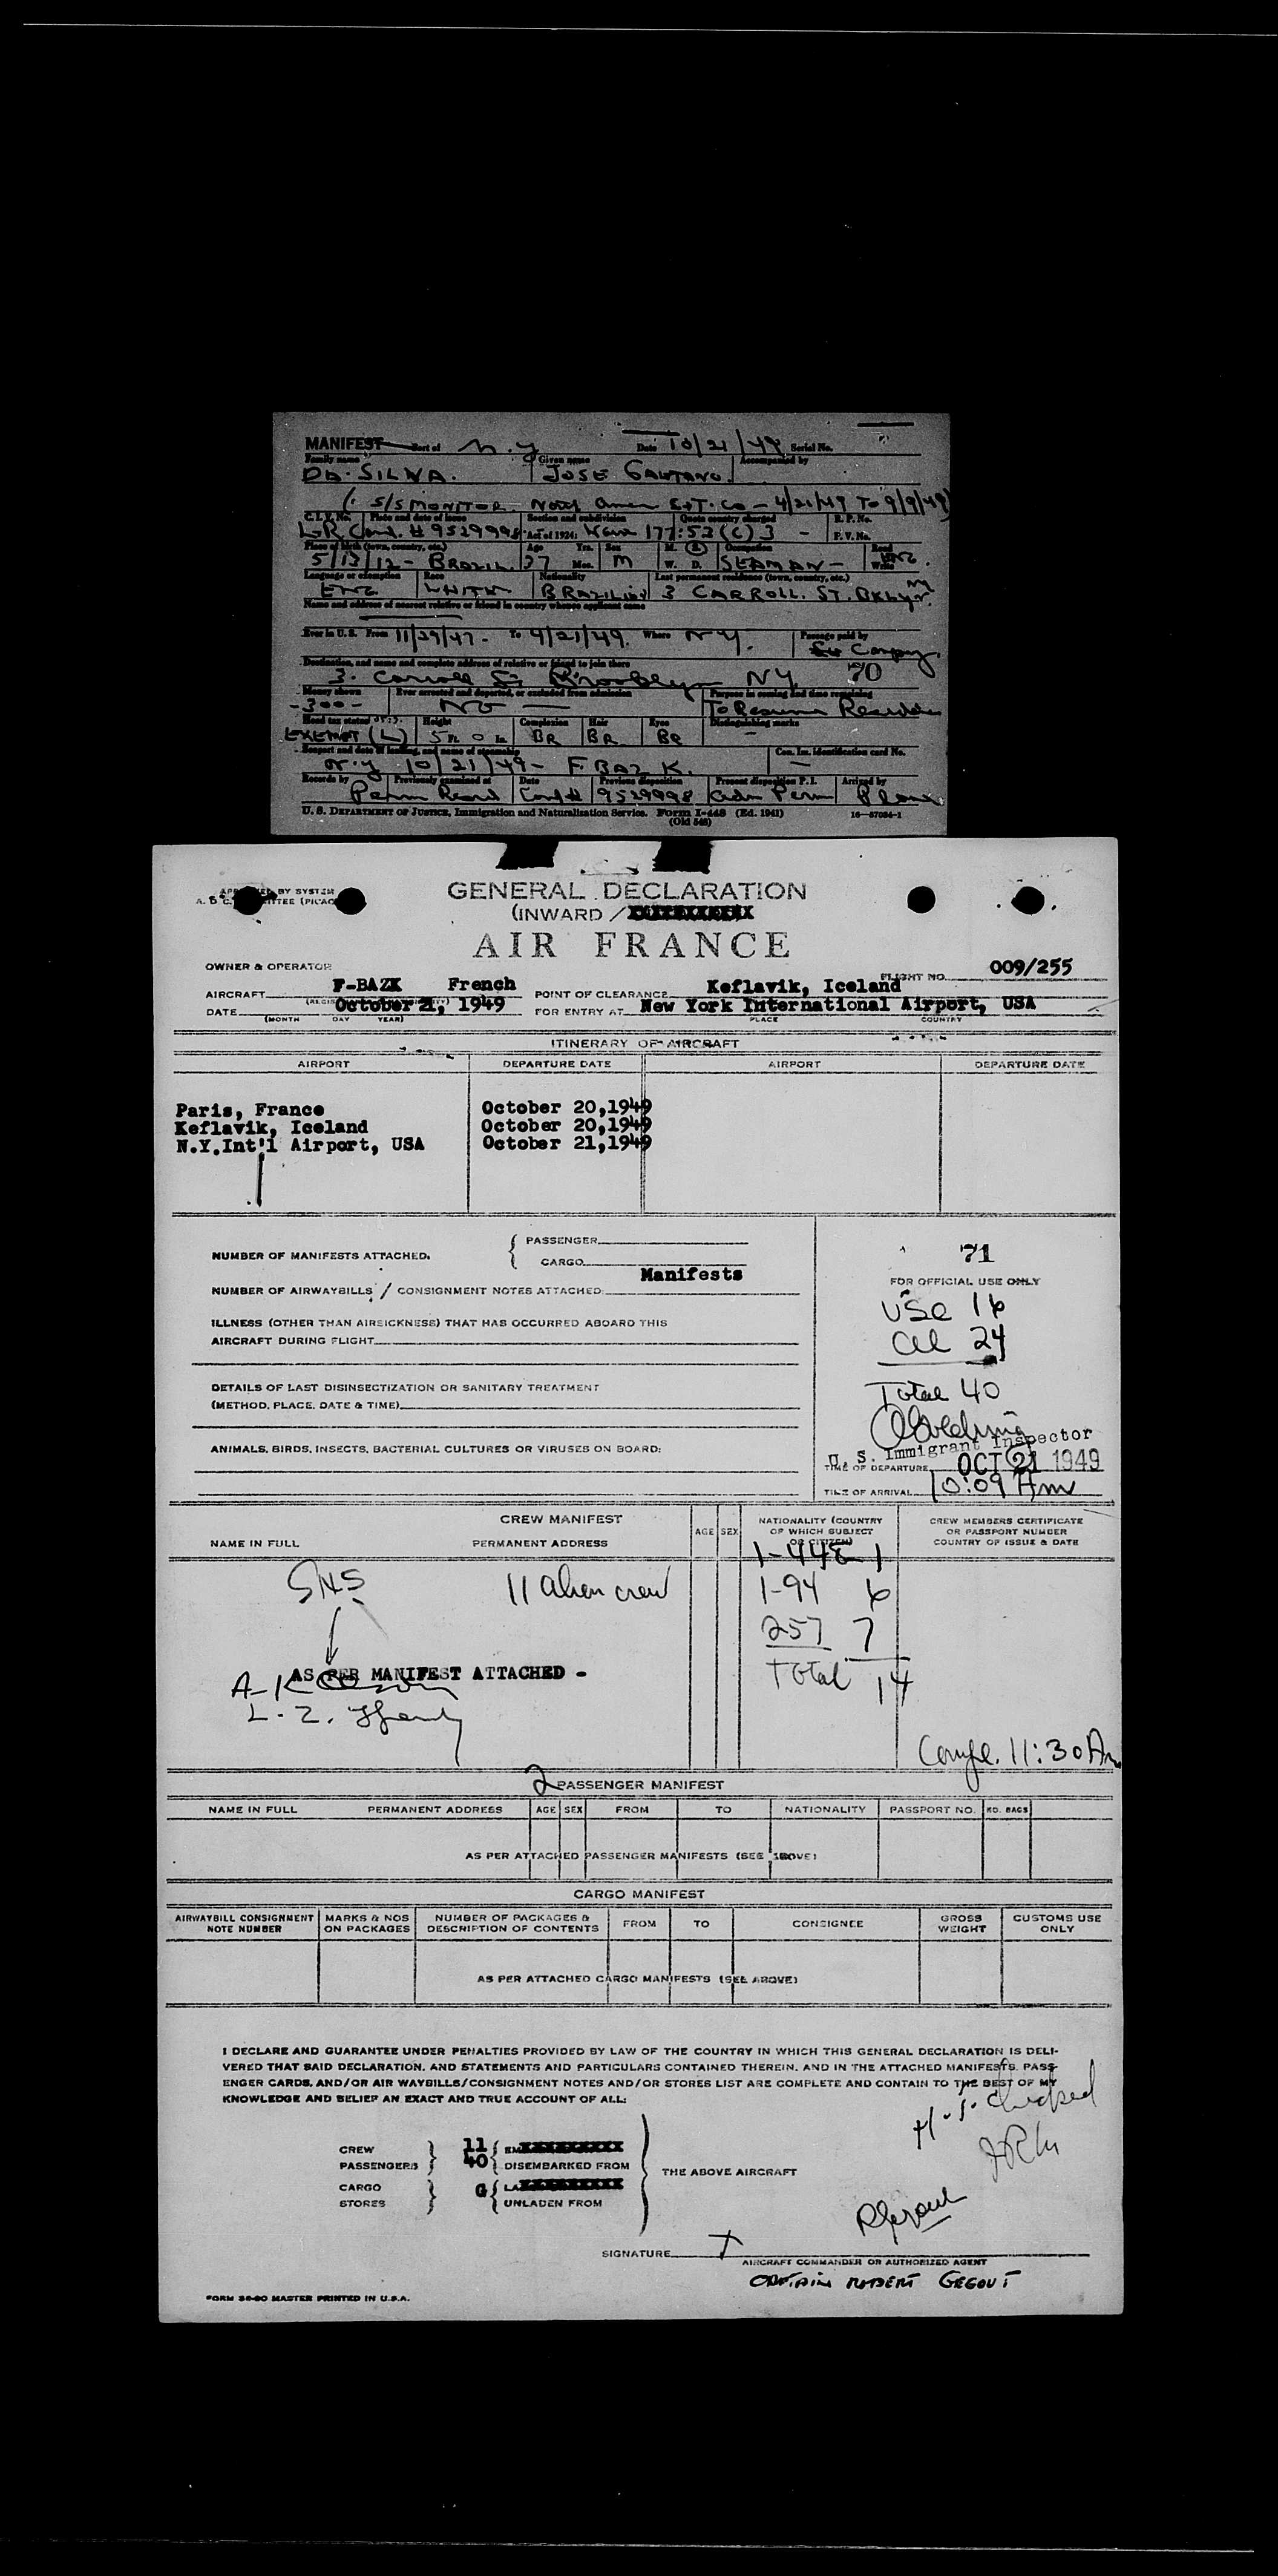 MANIFEST Port of N.Y Date 10/21/49 Serial No.
Family name Given name Accompanied by
DA SILVA. JOSE
(. S/S MONITOR North Amer Co - 4/21/49 To 9/9/49)
C.I.V. No. Place and date of issue Section and subdivision Quota country charged R. P. No.
# 9529998 Act of 1924: 177:53 (C) 3 - P. V. No.
Place of birth (town, country, etc.) Age Yrs. Sex M. S Occupation Read
5/13/12 - BRAZIL. 37 Mos. M W. D. SEAMAN - Write ENG.
Language or exemption Race Nationality Last permanent residence (town, country, etc.)
ENG WHITE 3 CARROLL. ST. BKLYN. NY
Name and address of nearest relative or friend in country whence applicant came
Ever in U. S. From 11/29/47 - To 4/21/49. Where N Y. Passage paid by
Company.
Destination, and name and complete address of relative or friend to join there
3. Carroll St Brooklyn NY. 70
Money shown Ever arrested and deported, or excluded from admission Purpose in coming and time remaining
- 300 - NO — To Resume Residence
Head tax status Height Complexion Hair Eyes Distinguishing marks
EXEMPT (L) 5 Ft. 0 In. BR BR. BR —
Seaport and date of landing, and name of steamship Can. Im. Identification card No.
N.Y 10/21/49 - F. BAZ K. —
Records by Previously examined at Date Previous disposition Present disposition P. I. Arrived by
Perm Record 9529998 Adm Perm Plane
U. S. DEPARTMENT OF JUSTICE, Immigration and Naturalization Service. Form I-448 (Ed. 1941) 16—27024-1
(Old 548)
GENERAL DECLARATION
(INWARD / XXXXXXXXXXX
AIR FRANCE
OWNER & OPERATOR
FLIGHT NO. 009/255
AIRCRAFT F-BAZK French POINT OF CLEARANCE Keflavik, Iceland
DATE October 21, 1949 FOR ENTRY AT New York International Airport, USA
(MONTH DAY YEAR) PLACE COUNTRY
ITINERARY OF AIRCRAFT
AIRPORT DEPARTURE DATE AIRPORT DEPARTURE DATE
Paris, France October 20,1949
Keflavik, Iceland October 20,1949
N.Y.Int'l Airport, USA October 21,1949
NUMBER OF MANIFESTS ATTACHED. { PASSENGER
CARGO
71
Manifests
NUMBER OF AIRWAYBILLS / CONSIGNMENT NOTES ATTACHED:
FOR OFFICIAL USE ONLY
USC 16
ILLNESS (OTHER THAN AIRSICKNESS) THAT HAS OCCURRED ABOARD THIS
AIRCRAFT DURING FLIGHT
al 24
DETAILS OF LAST DISINSECTIZATION OR SANITARY TREATMENT
(METHOD, PLACE, DATE & TIME)
Total 40
ANIMALS, BIRDS, INSECTS, BACTERIAL CULTURES OR VIRUSES ON BOARD:
U. S. Immigrant Inspector
TIME OF DEPARTURE OCT 21 1949
TIME OF ARRIVAL 10:09 Am
CREW MANIFEST
NAME IN FULL PERMANENT ADDRESS AGE SEX NATIONALITY (COUNTRY OF WHICH SUBJECT OR CITIZEN) CREW MEMBERS CERTIFICATE OR PASSPORT NUMBER COUNTRY OF ISSUE & DATE
1-448 1
11 alien crew 1-94 6
257 7
AS PER MANIFEST ATTACHED -
Total 14
Comp. 11:30 Am
2 PASSENGER MANIFEST
NAME IN FULL PERMANENT ADDRESS AGE SEX FROM TO NATIONALITY PASSPORT NO. NO. BAGS
AS PER ATTACHED PASSENGER MANIFESTS (SEE ABOVE)
CARGO MANIFEST
AIRWAYBILL CONSIGNMENT NOTE NUMBER MARKS & NOS ON PACKAGES NUMBER OF PACKAGES & DESCRIPTION OF CONTENTS FROM TO CONSIGNEE GROSS WEIGHT CUSTOMS USE ONLY
AS PER ATTACHED CARGO MANIFESTS (SEE ABOVE)
I DECLARE AND GUARANTEE UNDER PENALTIES PROVIDED BY LAW OF THE COUNTRY IN WHICH THIS GENERAL DECLARATION IS DELI-
VERED THAT SAID DECLARATION, AND STATEMENTS AND PARTICULARS CONTAINED THEREIN, AND IN THE ATTACHED MANIFESTS, PASS-
ENGER CARDS, AND/OR AIR WAYBILLS/CONSIGNMENT NOTES AND/OR STORES LIST ARE COMPLETE AND CONTAIN TO THE BEST OF MY
KNOWLEDGE AND BELIEF AN EXACT AND TRUE ACCOUNT OF ALL:
checked
CREW 11 { EMXXXXXXXXX
PASSENGERS 40 DISEMBARKED FROM
THE ABOVE AIRCRAFT
CARGO G { LAXXXXXXXXX
STORES UNLADEN FROM
SIGNATURE
AIRCRAFT COMMANDER OR AUTHORIZED AGENT
CAPTAIN ROBERT GEGOUT
FORM 36-60 MASTER PRINTED IN U.S.A.